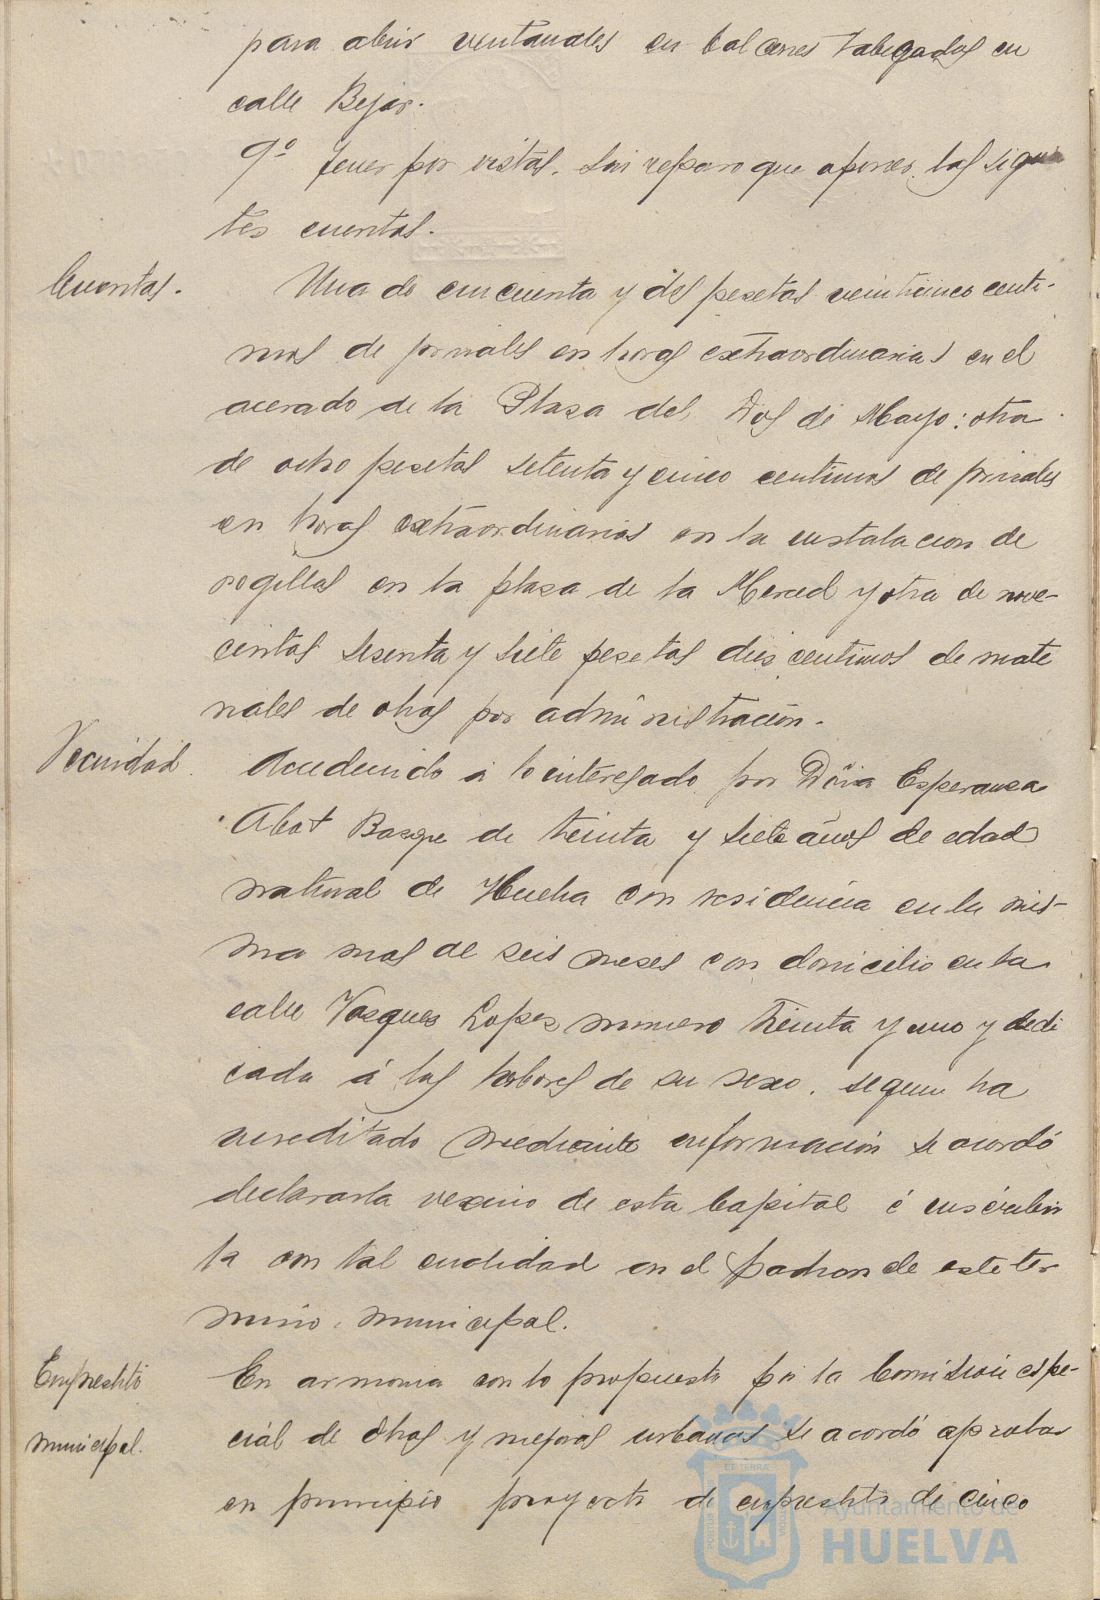 para abrir ventanales en balcones tabicados en
calle Bejar.
9º Tener por vistas, sin reparo que oponer, las siguien
tes cuentas.
Cuentas.
Una de cincuenta y dos pesetas veinticinco centi-
mos de jornales en horas extraordinarias en el
acerado de la Plaza del Dos de Mayo: otra
de ocho pesetas setenta y cinco centimos de jornales
en horas extraordinarias en la instalacion de
rogillas en la plaza de la Merced y otra de nove-
cientas sesenta y siete pesetas diez centimos de mate
riales de obras por administración.
Vecindad.
Accediendo á lo interesado por Doña Esperanza
Abot de treinta y siete años de edad
natural de Huelva con residencia en la mis-
ma mas de seis meses con domicilio en la
calle Vasques Lopez numero treinta y uno y dedi
cada á las labores de su sexo, segun ha
acreditado mediante información se acordó
declararla vecino de esta Capital é inscribir
la con tal cualidad en el padron de este ter
mino municipal.
Emprestito
municipal.
En armonia con lo propuesto por la Comisión espe-
cial de Obras y mejoras urbanas se acordó aprobar
en principio proyecto de emprestito de cinco
Ayuntamiento de
HUELVA